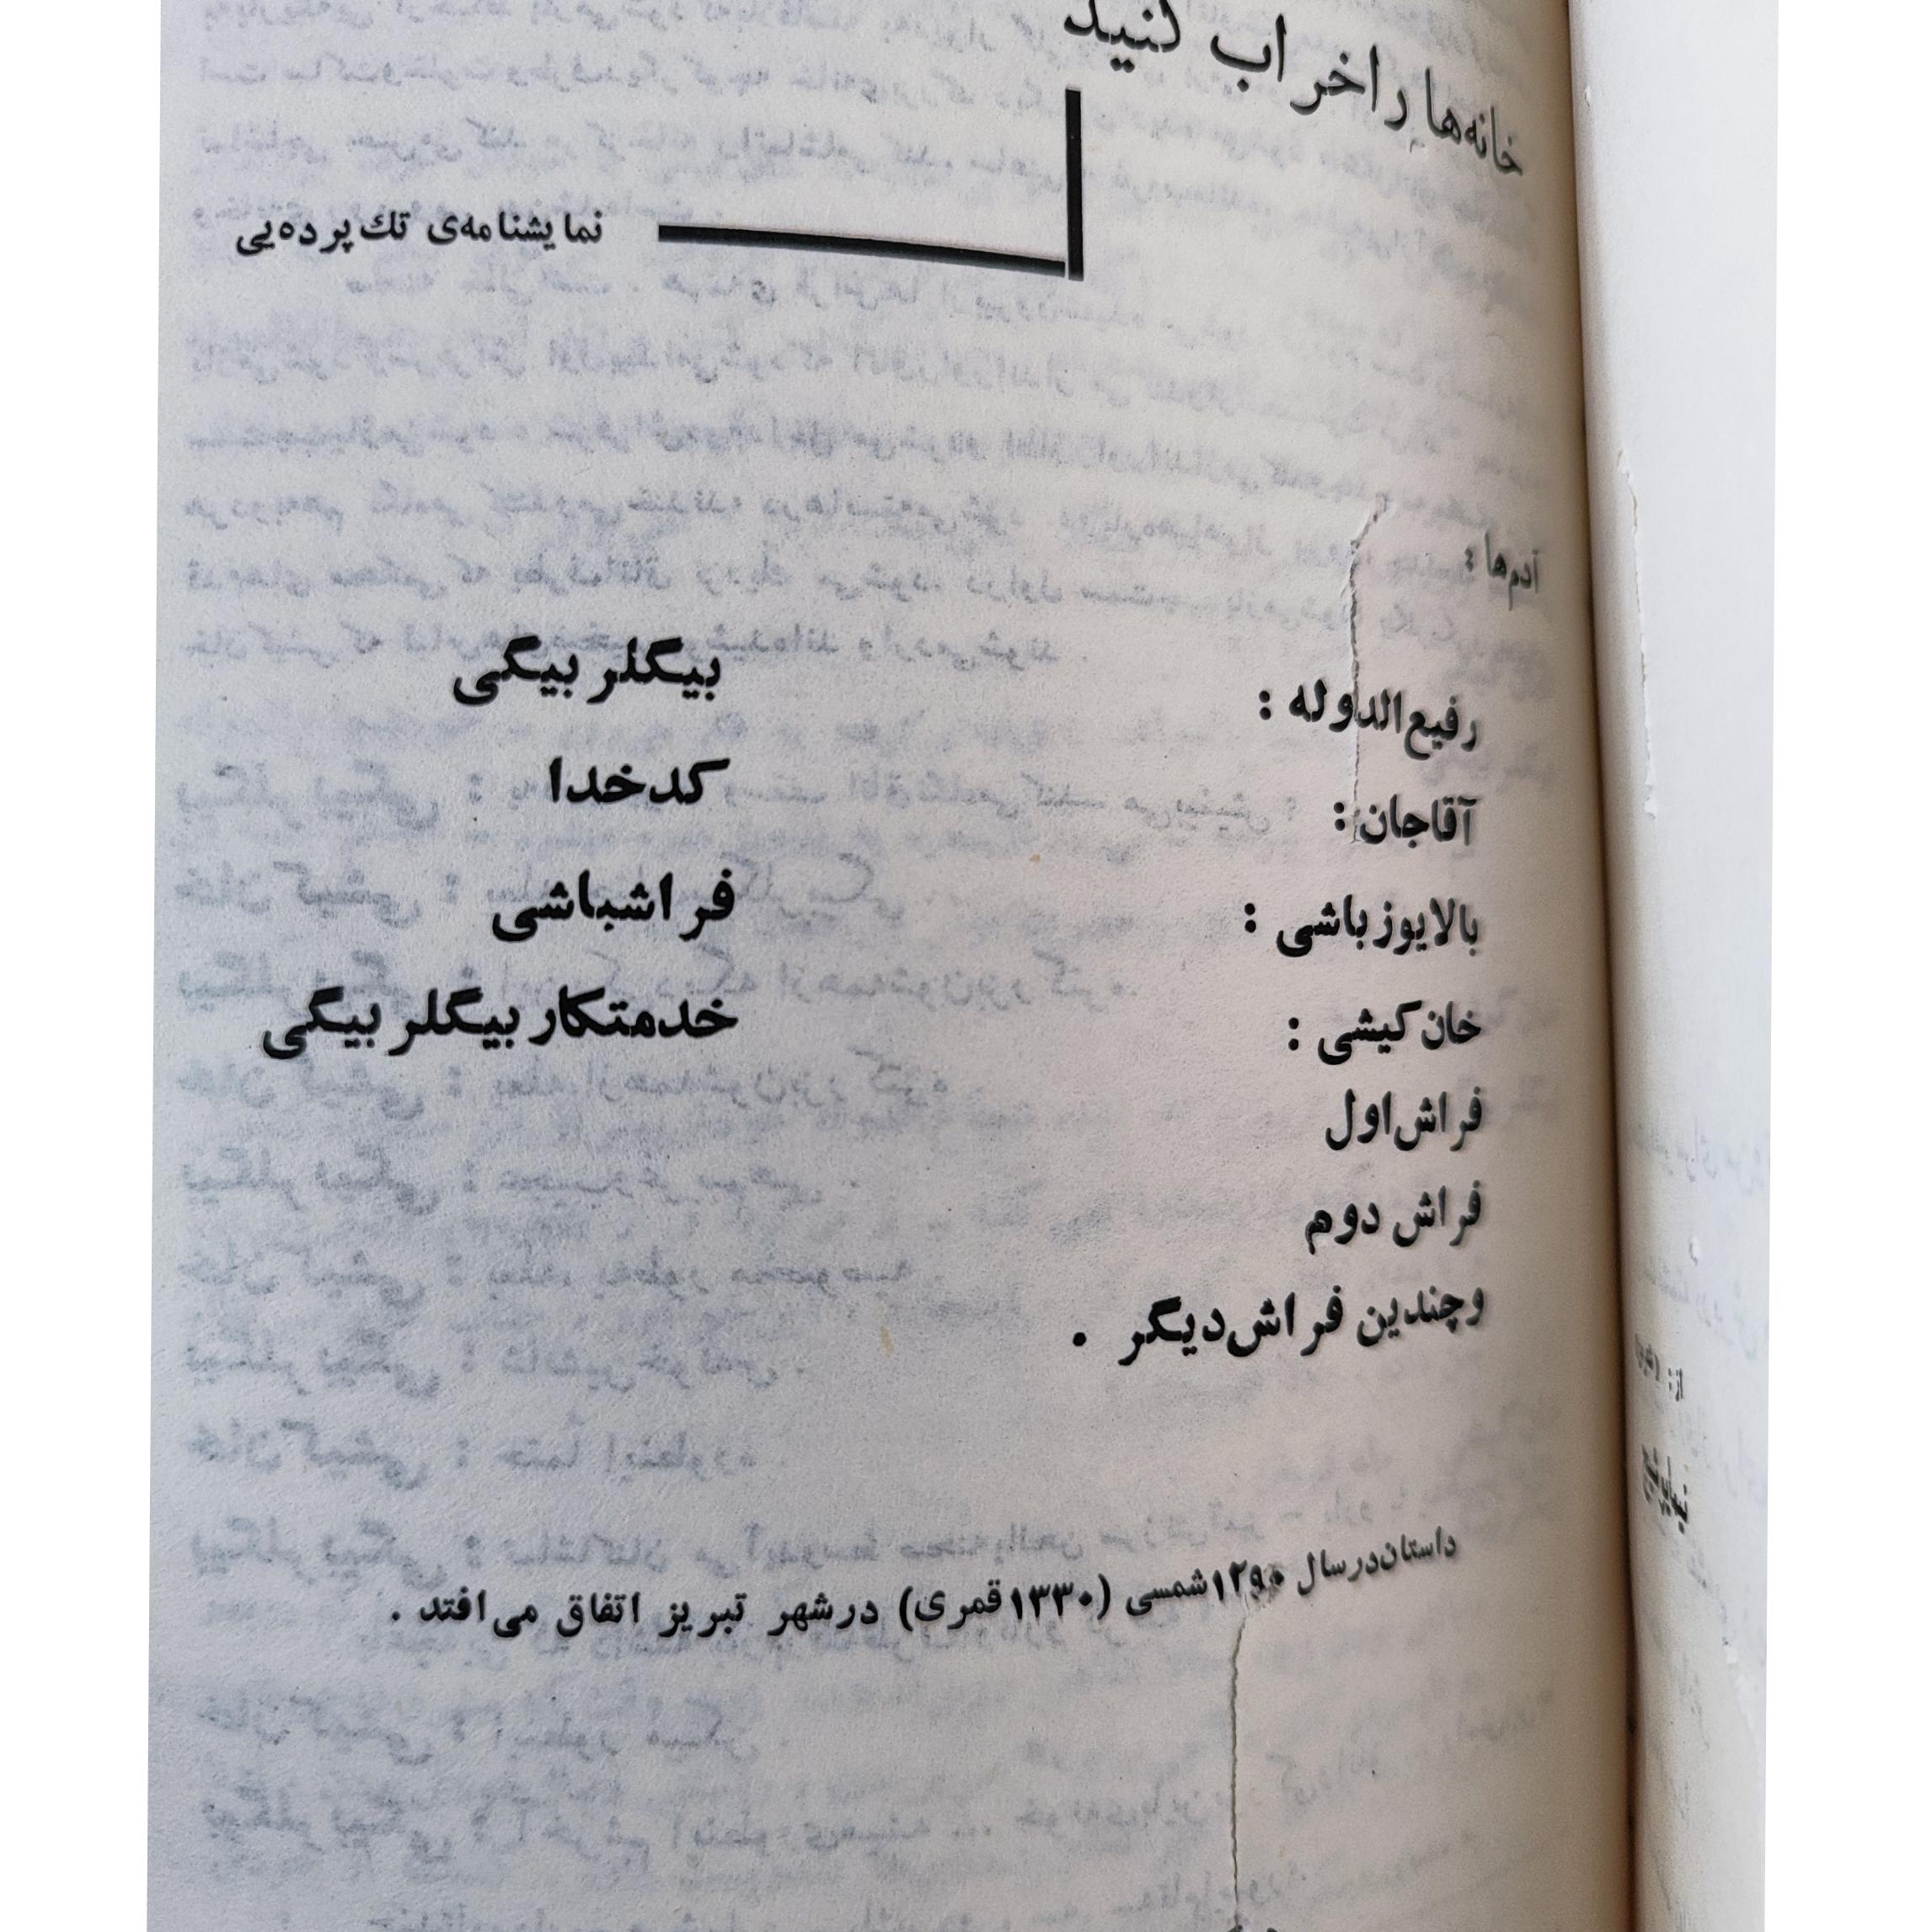 خانه‌ها را خراب کنید
نمایشنامه‌ی تك پرده‌یی
آدم‌ها :
رفیع‌الدوله : بیگلر بیگی
آقاجان : کدخدا
بالایوزباشی : فراشباشی
خان کیشی : خدمتکار بیگلر بیگی
فراش اول
فراش دوم
و چندین فراش دیگر .
داستان در سال ۱۲۹۰ شمسی (۱۳۳۰ قمری) در شهر تبریز اتفاق می‌افتد .
از: